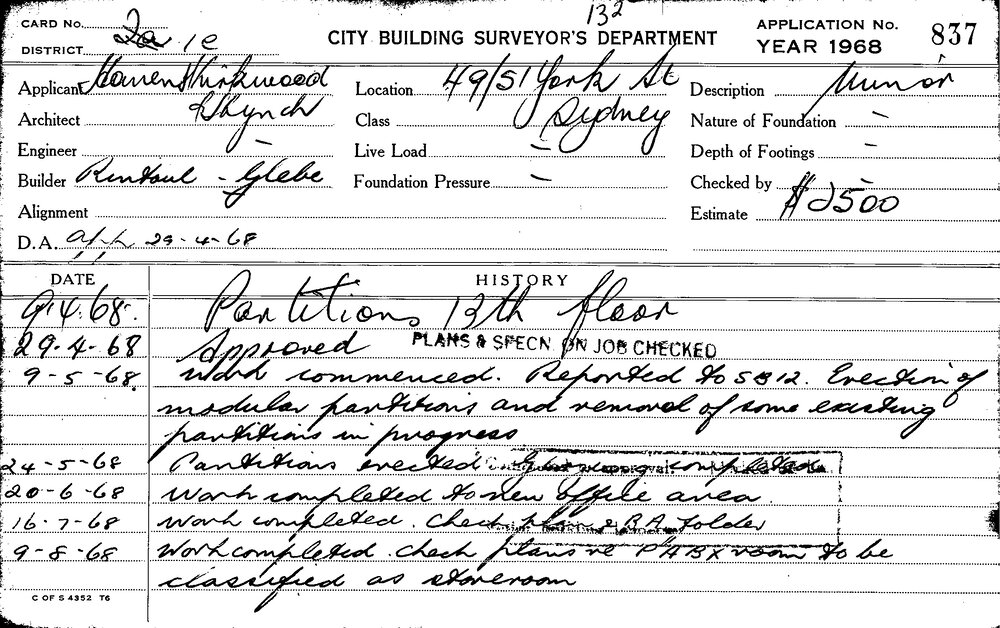 132
CARD No.
CITY BUILDING SURVEYOR'S DEPARTMENT
APPLICATION No. 837
YEAR 1968
DISTRICT 1e
Applicant Kirkwood
Location 49/51 York St
Description Minor
Architect & Lynch
Class Sydney
Nature of Foundation -
Engineer -
Live Load -
Depth of Footings -
Builder Rintoul - Glebe
Foundation Pressure -
Checked by -
Alignment
Estimate $2500
D.A. app 29-4-68
DATE HISTORY
9.4.68. Partitions 13th floor
29-4-68 Approved PLANS & SPECN. ON JOB CHECKED
9-5-68. Work commenced. Reported to SB12. Erection of
modular partitions and removal of some existing
partitions in progress
24-5-68 Partitions erected completed
20-6-68 Work completed to new office area.
16-7-68 Work completed. Check plans & B.A. folder
9-8-68 Work completed. check plans re PABX room to be
classified as storeroom
C OF S 4352 T6